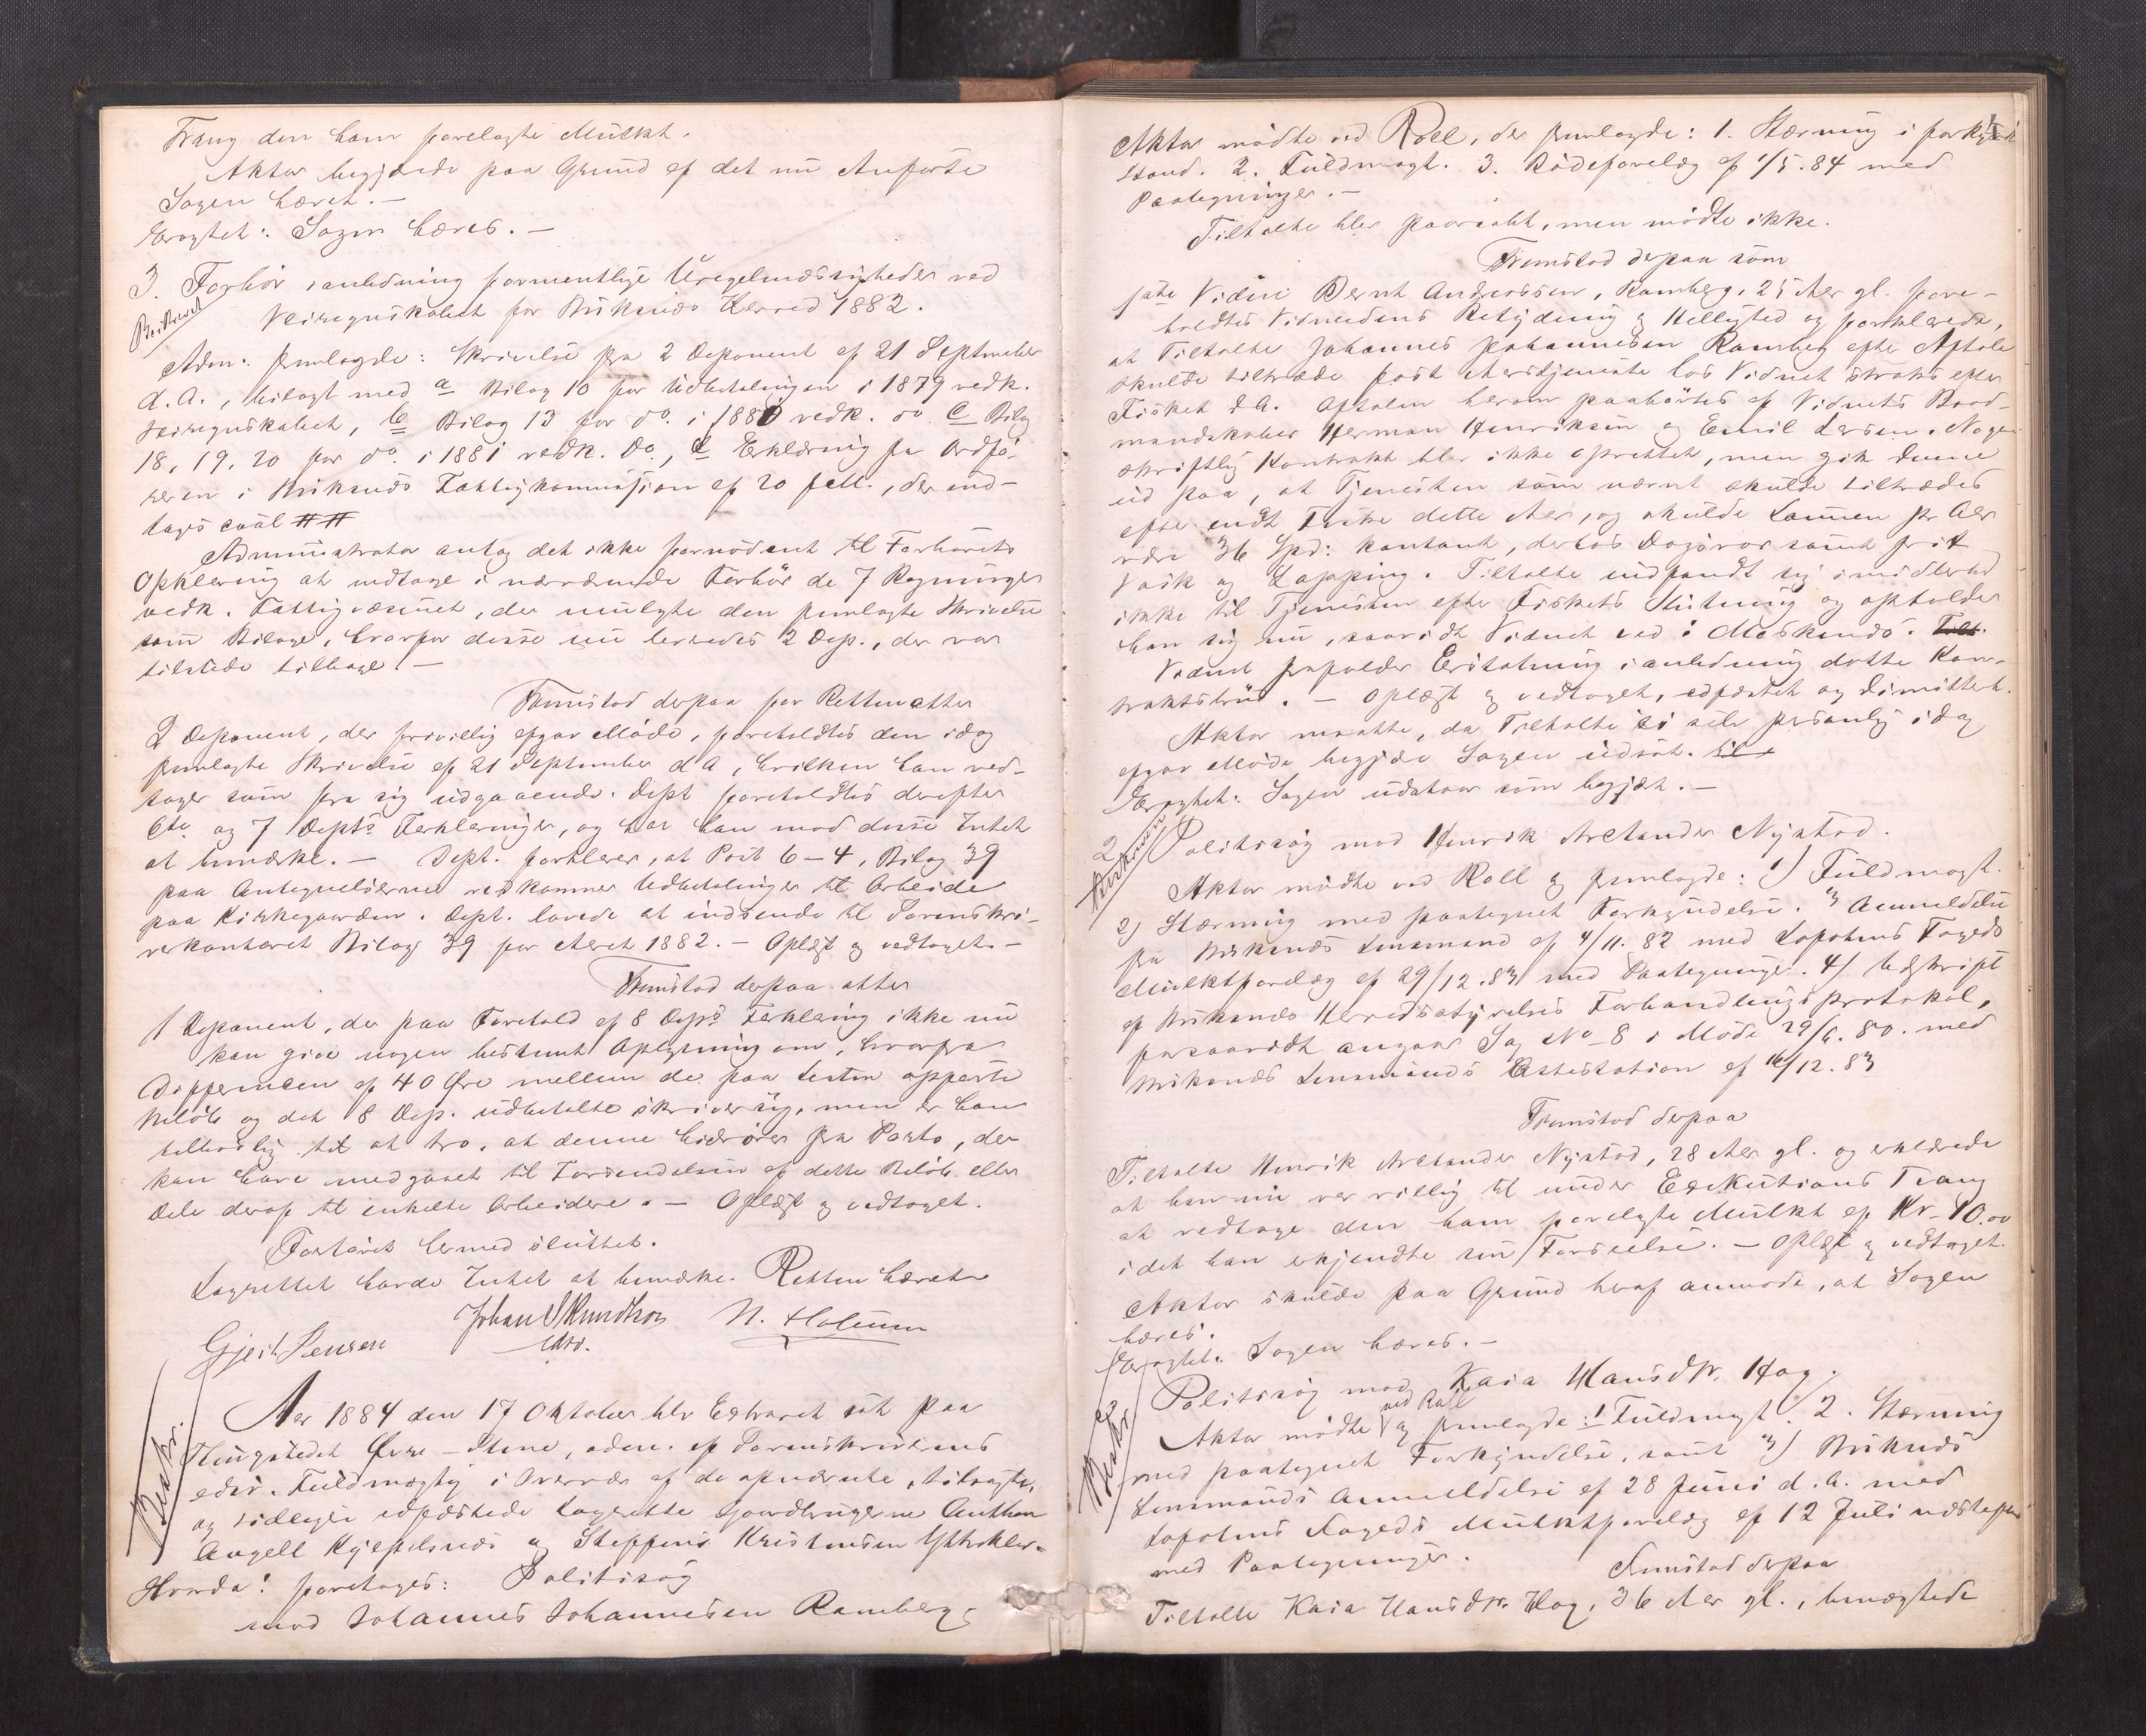 Tvang den ham forelagte Mulkt.
Aktor begjærede paa Grund af det nu Anførte
Sagen hævet. —
Eragtet: Sagen hæves. —
3. Forhør i anledning formentlige Uregelmæssigheder ved
Beskrevet
Veiregnskabet for Buksnæs Herred 1882.
Adm: fremlagde: Skrivelse fra 2 Deponent af 21 September
d.A., bilagt med a Bilag 10 for Udbetalingen i 1879 vedk.
Veiregnskabet, b Bilag 13 for do. i 1880 vedk. do c Bilag
18, 19, 20 for do. i 1881 vedk. do., d Erklæring fra Ordfø-
reren i Buksnæs Fattigkommission af 20 , der ind-
tages saal ##
Administrator antog det ikke fornødent til Forhørets
Opklaring at indtage i nærværende Forhør de 7 Regninger
vedk. Fattigvæsenet, der mulgte den fremlagte Skrivelse
som Bilage, hvorfor disse nu leveredes 2 Dep., der var
tilstede tilbage. —
Fremstod derpaa for Retten atter
2 Deponent, der frivillig afgav Møde, foreholdtes den idag
fremlagte Skrivelse af 21 September d A, hvilken han ved-
tager som fra sig udgaaende. Dept foreholdtes derefter
6te og 7 Depts Forklaringer, og har han mod disse Intet
at bemærke. — Dept. forklarer, at Post 6-4, Bilag 39
paa Antegnelserne vedkommer Udbetalinger til Arbeide
paa Kirkegaarden. Dept. lovede at indsende til Sorenskri-
verkontoret Bilag 39 for Aaret 1882. — Oplæst og vedtaget. —
Fremstod derpaa atter
1 Deponent, der paa Forehold af 8 Deps Forklaring ikke nu
kan give nogen bestemt Oplysning om, hvorfra
Differencen af 40 Øre mellem de paa Listen opførte
Beløb og det 8 Dep. udbetalte skriver sig, men er han
tilbøielig til at tro, at denne hidrører fra Porto, der
kan have medgaaet til Forsendelsen af dette Beløb eller
Dele deraf til enkelte Arbeidere. — Oplæst og vedtaget.
Forhøret hermed sluttet.
Lagrettet havde Intet at bemærke. Retten hævet
Gjert Jensen Johan N. Holum
Beskr.
Aar 1884 den 17 Oktober blev Extraret sat paa
Thingstedet Øvre-Stene, adm. af Sorenskriverens
edsv. Fuldmægtig i Overvær af de opnævnte, tilsagte,
og tidligere edfæstede Lagrette Gaardbrugerne Anthon
Angell og Steffens Kristensen
Hvorda: foretoges: Politisag
mod Johannes Johannesen Ramberg.
Aktor mødte ved Roll, der fremlagde: 1. Stævning i forkyndt
Stand. 2. Fuldmagt. 3. Bødeforelæg af 1/5.84 med
Paategninger. —
Tiltalte blev paaraabt, men mødte ikke.
Fremstod derpaa som
1ste Vidne Bernt Andreassen, Ramberg, 25 Aar gl. fore-
holdtes Vidneedens Betydning og Hellighed og forklarede,
at Tiltalte Johannes Johannesen Ramberg efter Aftale
skulde tiltræde fast Aarstjeneste hos Vidnet straks efter
Fisket d A. Aftalen herom paahørtes af Vidnets Baad-
mandskaber Herman Henriksen og Emil Larsen. Nogen
skriftlig Kontrakt blev ikke oprettet, men gik denne
ud paa, at Tjenesten som nævnt skulde tiltrædes
efter endt Fiske dette Aar, og skulde Lønnen pr Aar
være 36 Spd: kontant, derhos Dogsvar samt frit
Vask og Lapping. Tiltalte indfandt sig imidlertid
ikke til Tjenesten efter Fiskets Slutning og opholder
han sig nu, saavidt Vidnet ved i Moskenæs. Tilt.
Vidnet frafalder Erstatning i anledning dette Kon-
traktsbrud. — Oplæst og vedtaget, edfæstet og dimitteret.
Aktor maatte, da Tiltalte ei selv personlig idag
afgav Møde begjære Sagen udsat.
Eragtet: Sagen udsattes som begjært. —
2 Politisag mod Henrik Arctander Nystad.
Aktor mødte ved Roll og fremlagde: 1) Fuldmagt.
2) Stævning med paategnet Forkyndelse. 3) Anmeldelse
fra Buksnæs Lensmand af 4/11.82 med Lofotens Fogeds
Mulktforelæg af 29/12.83 med Paategninger. 4) Udskrift
af Buksnæs Herredsstyrelses Forhandlingsprotokol,
forsaavidt angaar Sag No 8 i Møde 29/6.80. med
Buksnæs Lensmands Attestation af 16/12.83
Fremstod derpaa
Tiltalte Henrik Arctander Nystad, 28 Aar gl. og erklærede
at han nu var villig til under Exekutions Tvang
at vedtage den ham forelagte Mulkt af Kr. 10.00
idet han erkjendte sin Forseelse. — Oplæst og vedtaget.
Aktor skulde paa Grund heraf anmode, at Sagen
hæves.
Eragtet: Sagen hæves. —
3 Beskr.
Politisag mod Kaia Hansdtr. Hag.
Aktor mødte ved Roll og fremlagde: 1 Fuldmagt. 2. Stævning
med paategnet Forkyndelse, samt 3) Buksnæs
Lensmands Anmeldelse af 28 Juni d. A. med
Lofotens Fogeds Mulktforelæg af 12 Juli næstefter
med Paategninger.
Fremstod derpaa
Tiltalte Kaia Hansdtr. Hag, 36 Aar gl., benægtede